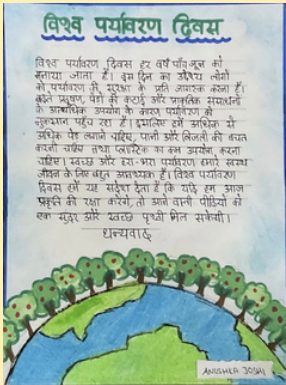 विश्व पर्यावरण दिवस
विश्व पर्यावरण दिवस हर वर्ष पाँच जून को
मनाया जाता है। इस दिन का उद्देश्य लोगों
को पर्यावरण की सुरक्षा के प्रति जागरूक करना है।
बढ़ते प्रदूषण, पेड़ों की कटाई और प्राकृतिक संसाधनों
के अत्यधिक उपयोग के कारण पर्यावरण को
नुकसान पहुँच रहा है। इसलिए हमें अधिक से
अधिक पेड़ लगाने चाहिए, पानी और बिजली की बचत
करनी चाहिए तथा प्लास्टिक का कम उपयोग करना
चाहिए। स्वच्छ और हरा-भरा पर्यावरण हमारे स्वस्थ
जीवन के लिए बहुत आवश्यक है। विश्व पर्यावरण
दिवस हमें यह संदेश देता है कि यदि हम आज
प्रकृति की रक्षा करेंगे, तो आने वाली पीढ़ियों को
एक सुंदर और स्वच्छ पृथ्वी मिल सकेगी।
धन्यवाद
ANUSHKA JOSHI